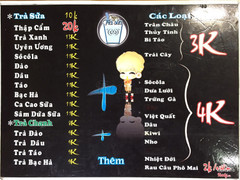 * Trà Sữa 10k
Thập Cẩm 20k
Trà Xanh 11K
Uyên Ương 11K
Sôcôla 11K
Dào 11K
Dâu 11K
Táo 11K
Bạc Hà 11K
Ca Cao Sữa 11K
Sâm Dứa Sữa 11K
* Trà Chanh
Trà Đào 11K
Trà Dâu 11K
Trà Táo 11K
Trà Bạc Hà 11K
Thêm
Các Loại
Trân Châu
Thủy Tinh
Bí Táo
3K
Trái Cây
Sôcôla
Dưa Lưới
Trứng Gà
4K
Việt Quất
Dâu
Kiwi
Nho
Nhiệt Đới
Rau Câu Phô Mai